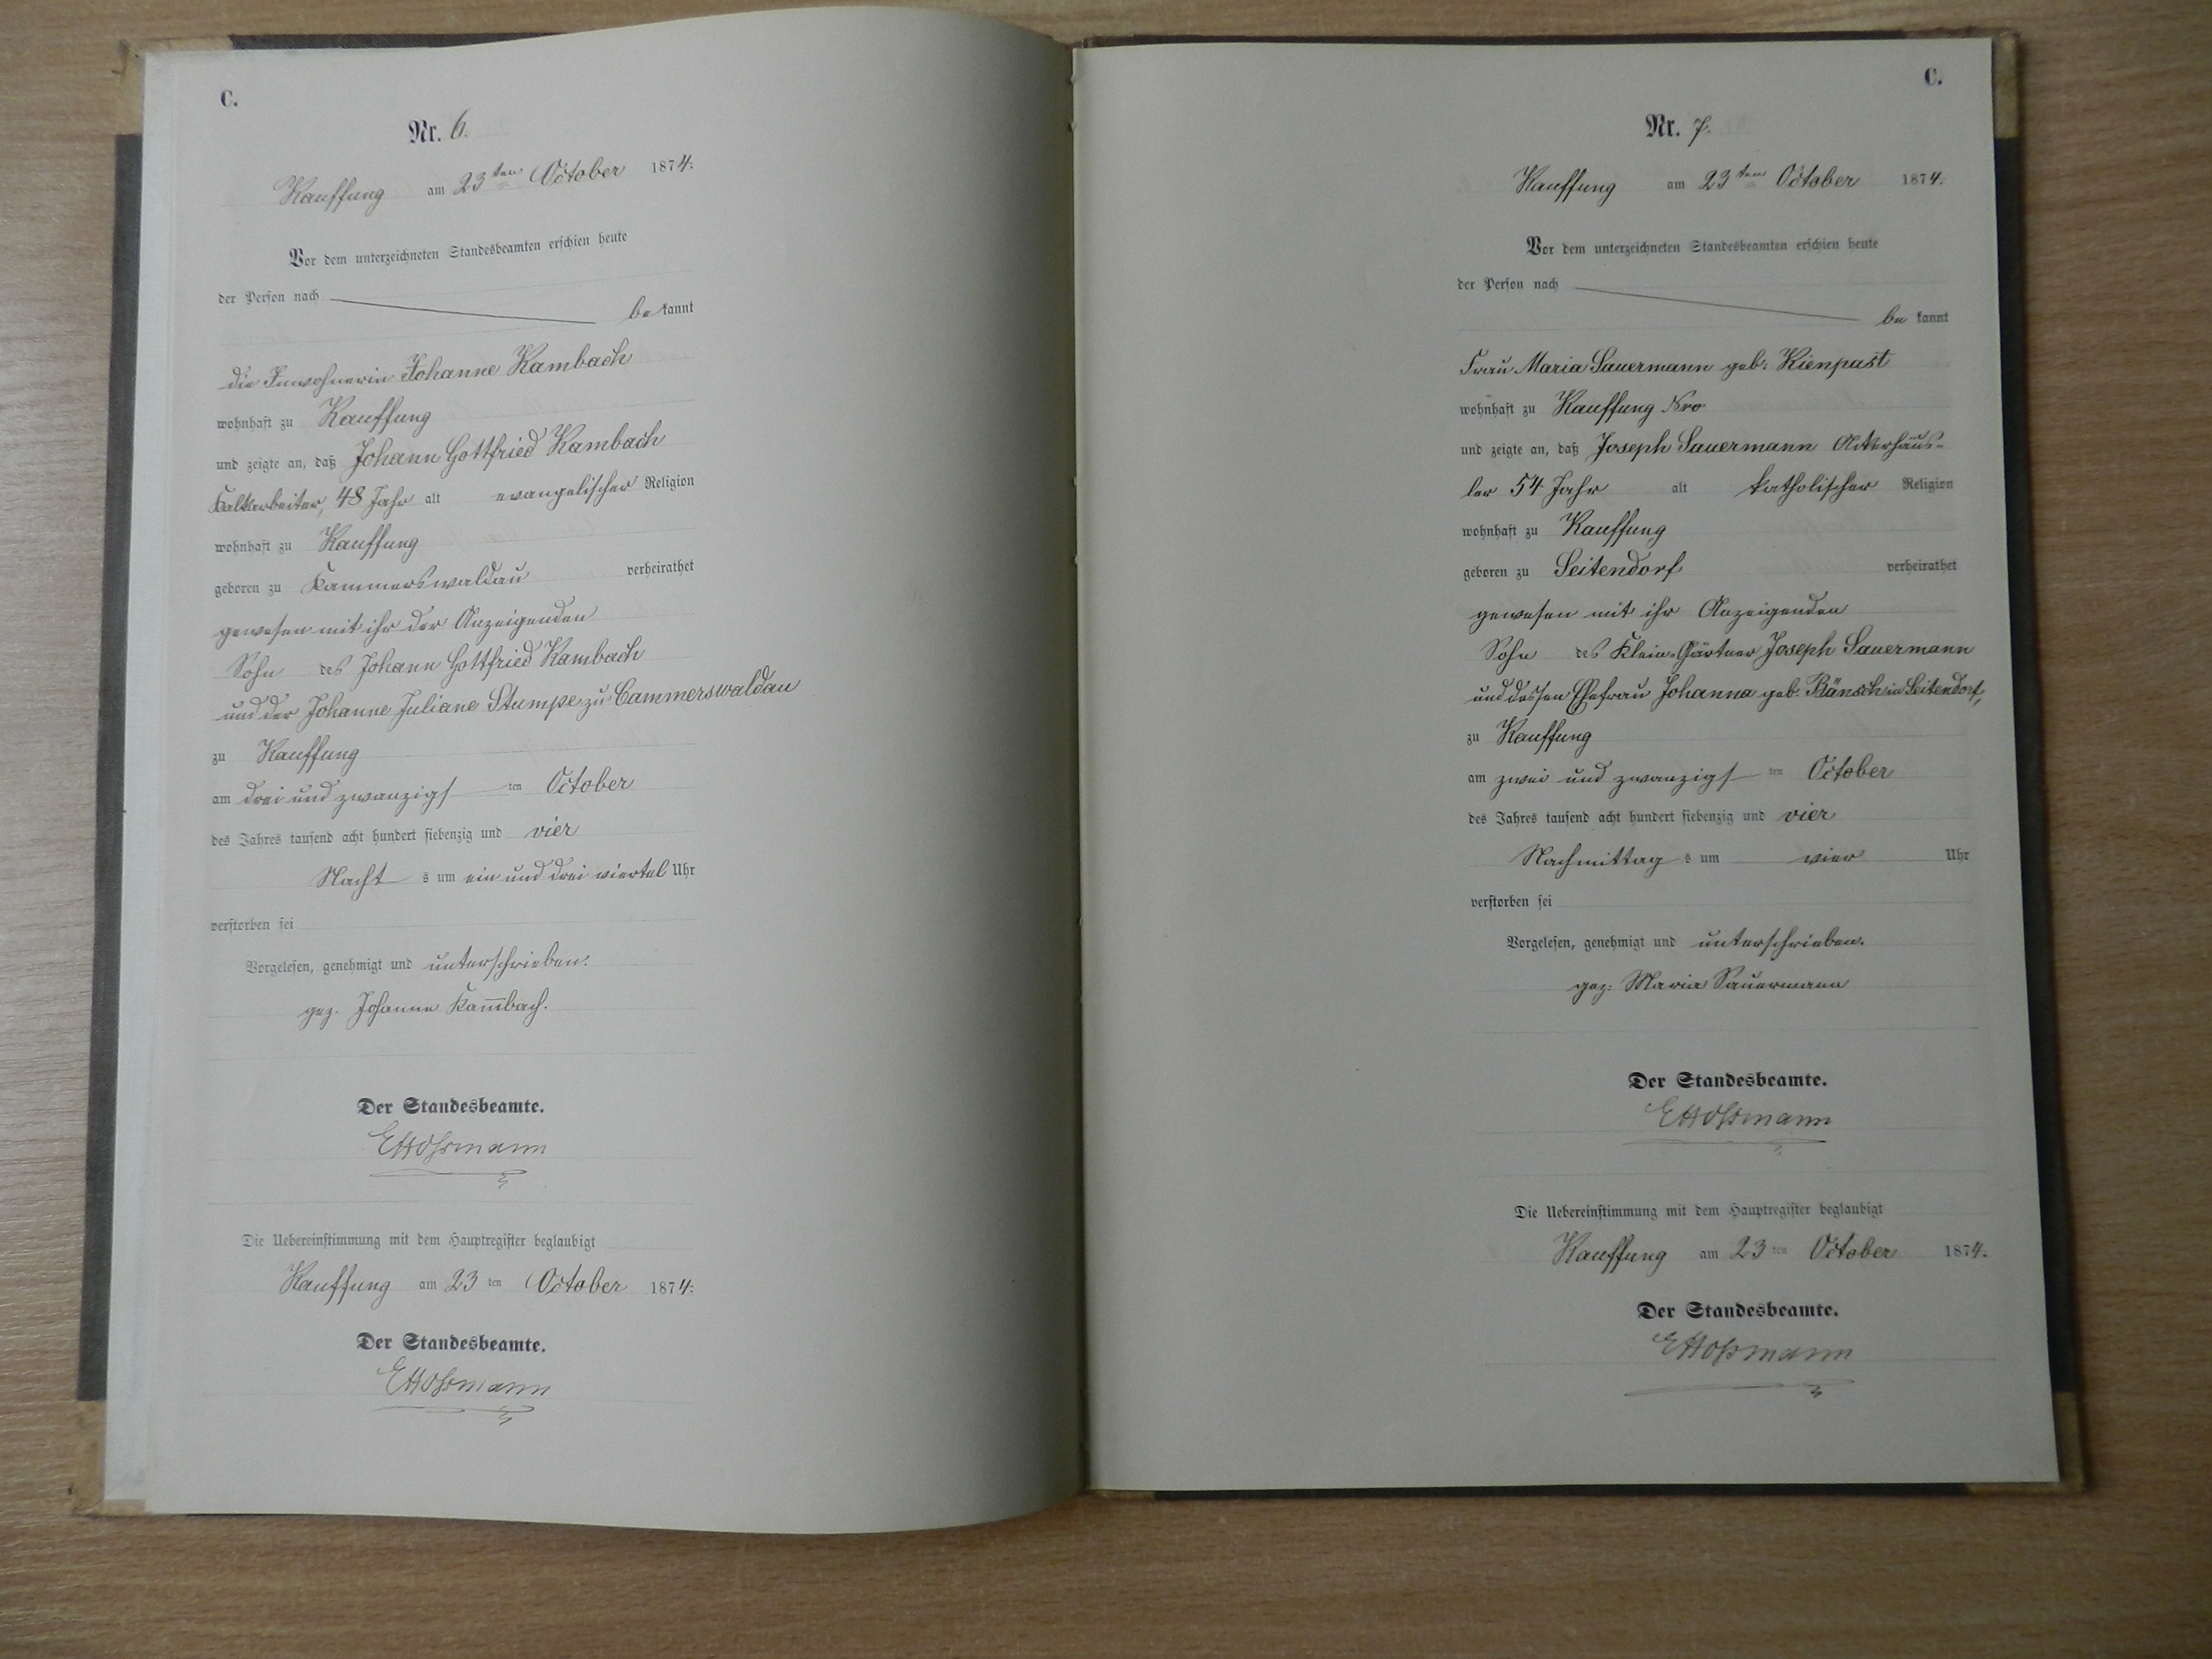 C.
Nr. 6.
Kauffung am 23ten October 1874.
Vor dem unterzeichneten Standesbeamten erschien heute
der Person nach
bekannt
die Inwohnerin Johanne Kambach
wohnhaft zu Kauffung
und zeigte an, daß Johann Gottfried Kambach
Kalkarbeiter, 48 Jahr alt evangelischer Religion
wohnhaft zu Kauffung
geboren zu Kammerswaldau verheirathet
gewesen mit ihr der Anzeigenden
Sohn des Johann Gottfried Kambach
und der Johanne Juliane Stumpe zu Cammerswaldau
zu Kauffung
am drei und zwanzigsten October
des Jahres tausend acht hundert siebenzig und vier
Nachts um ein und drei viertel Uhr
verstorben sei
Vorgelesen, genehmigt und unterschrieben.
gez. Johanne Kam̅bach.
Der Standesbeamte.
Die Uebereinstimmung mit dem Hauptregister beglaubigt
Kauffung am 23ten October 1874.
Der Standesbeamte.
C.
Nr. 7.
Kauffung am 23ten October 1874.
Vor dem unterzeichneten Standesbeamten erschien heute
der Person nach
bekannt
Frau Maria Sauermann geb. Kienpast
wohnhaft zu Kauffung Nro
und zeigte an, daß Joseph Sauermann Ackerhäus-
ler 54 Jahr alt katholischer Religion
wohnhaft zu Kauffung
geboren zu Seitendorf verheirathet
gewesen mit ihr Anzeigenden
Sohn des Klein-Gärtner Joseph Sauermann
und dessen Ehefrau Johanna geb. Bänsch in Seitendorf,
zu Kauffung
am zwei und zwanzigsten October
des Jahres tausend acht hundert siebenzig und vier
Nachmittags um vier Uhr
verstorben sei
Vorgelesen, genehmigt und unterschrieben.
gez. Maria Sauermann
Der Standesbeamte.
Die Uebereinstimmung mit dem Hauptregister beglaubigt
Kauffung am 23ten October 1874.
Der Standesbeamte.